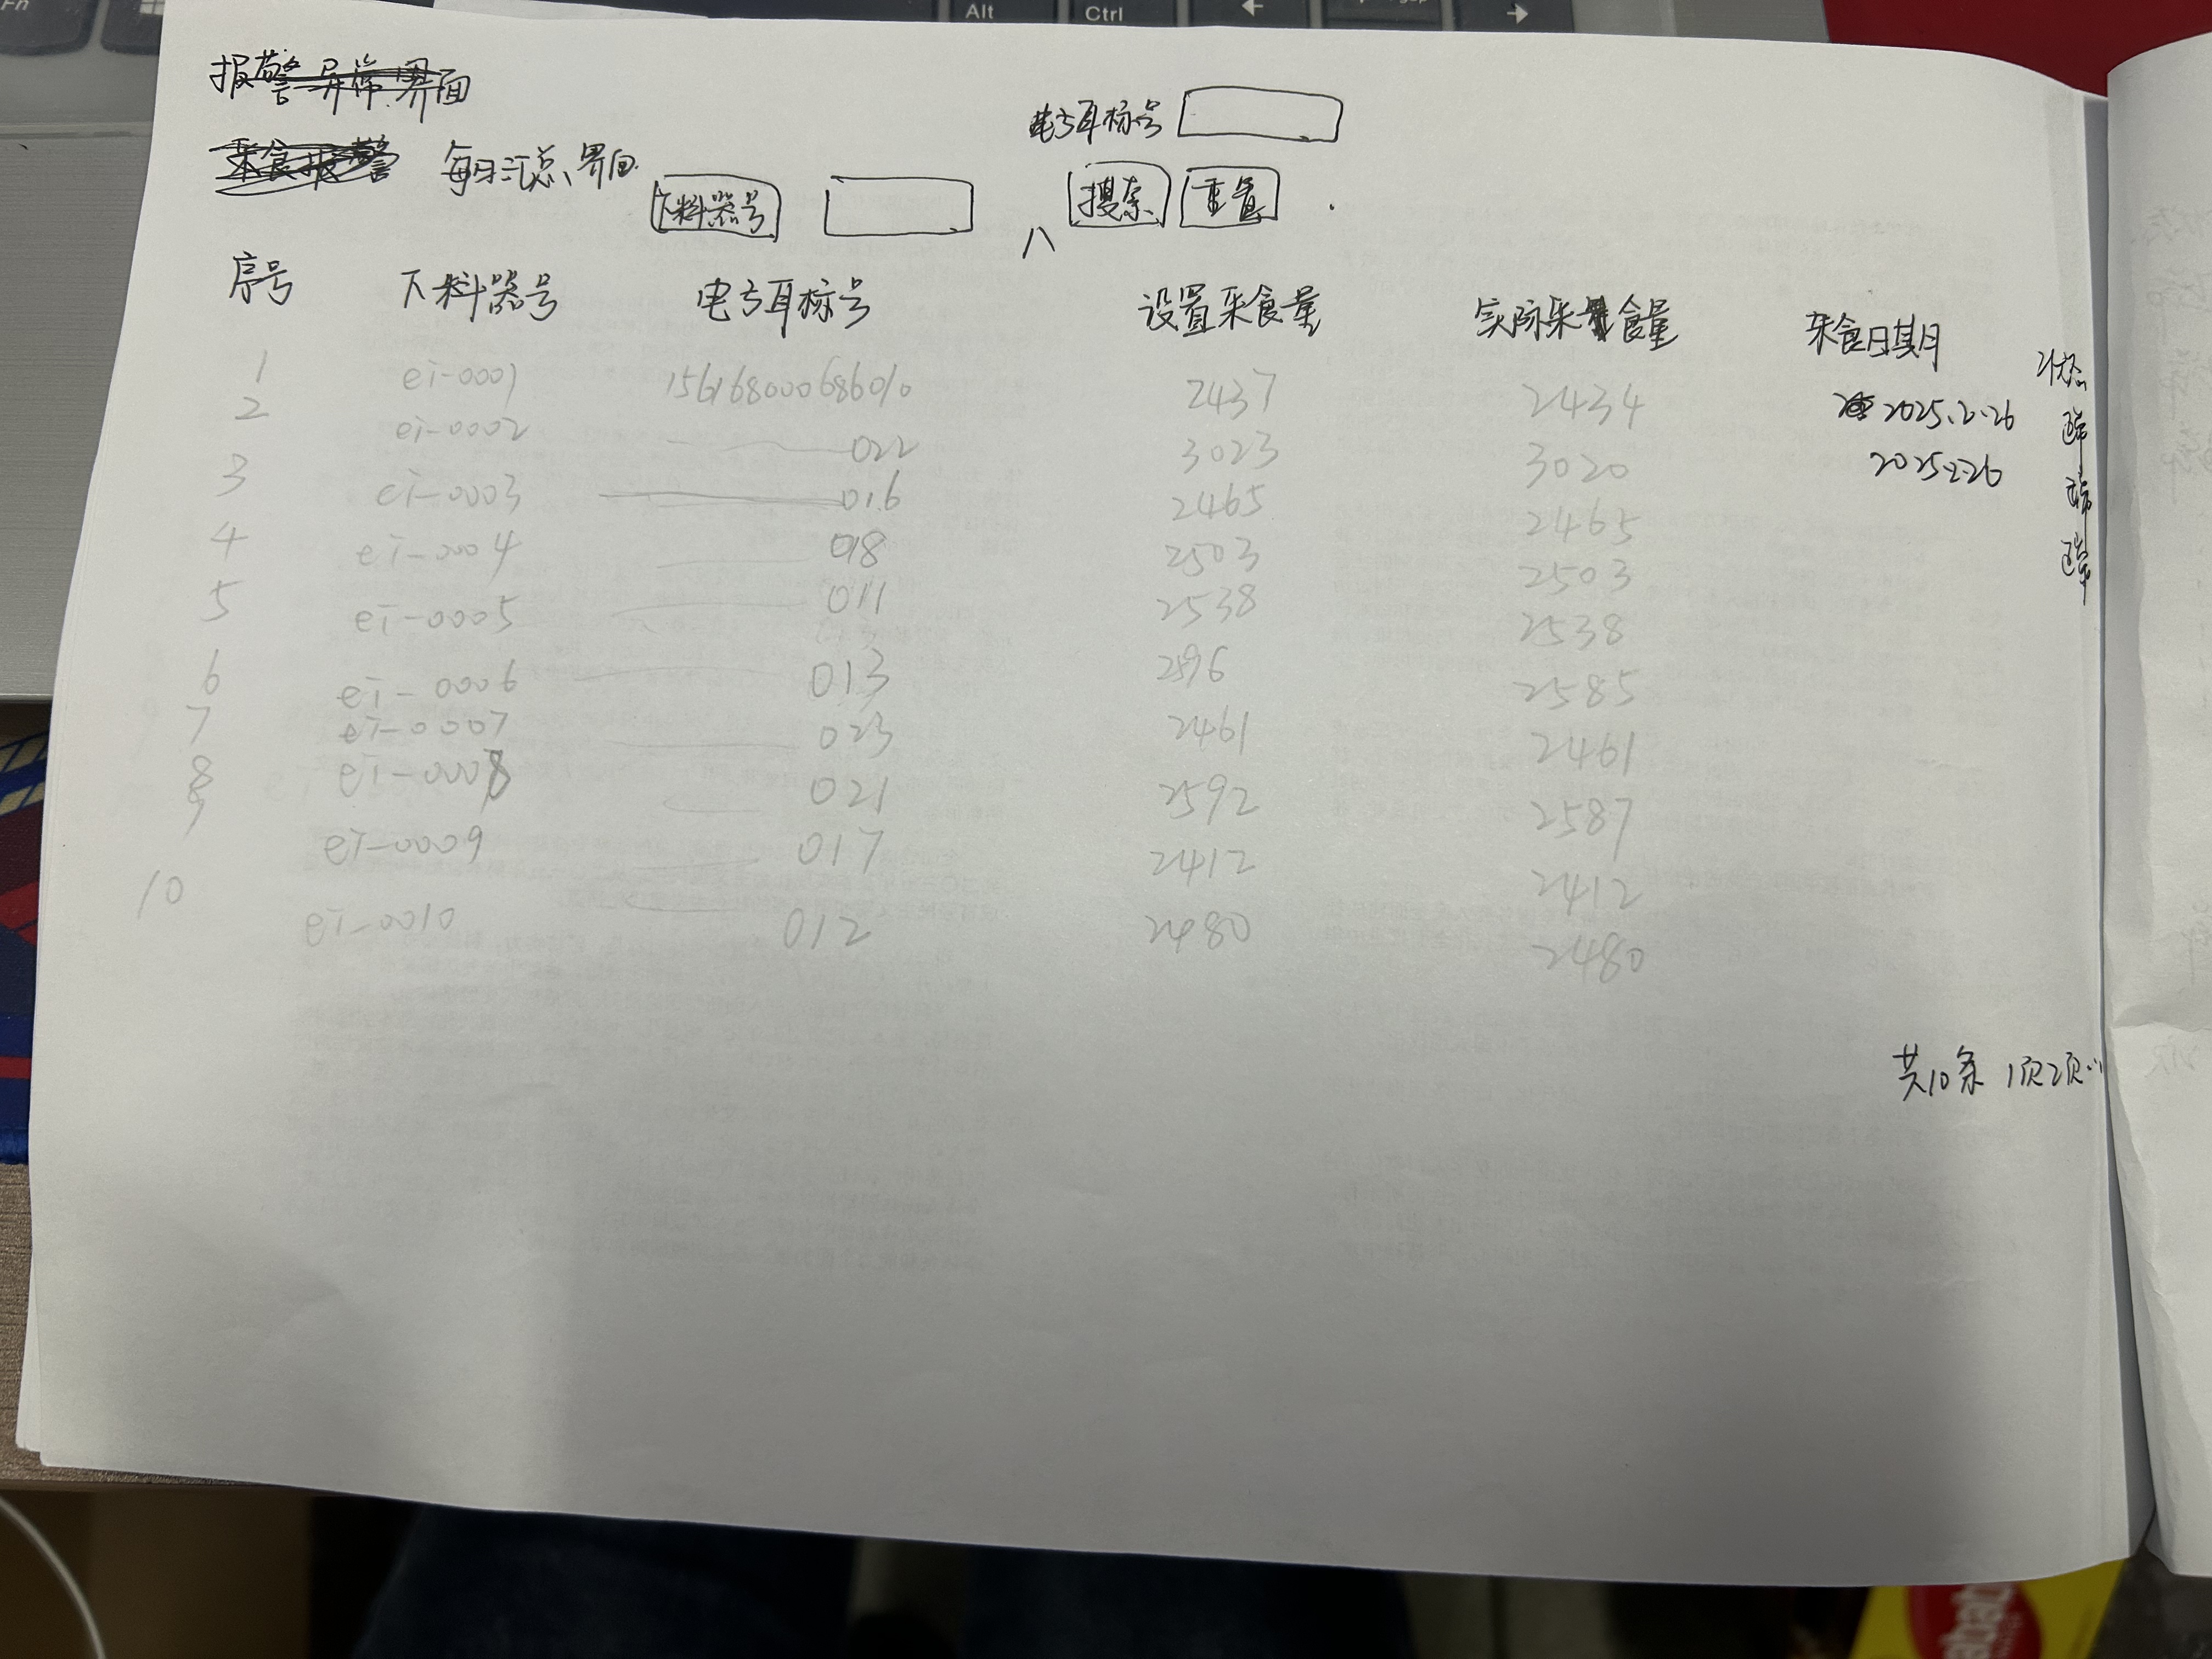 Fn Alt Ctrl ← →
报警异常界面
采食报警 每日汇总界面
电子耳标号
下料器号 搜索 重置
序号 下料器号 电子耳标号 设置采食量 实际采食量 采食日期 状态
1 eT-0001 156168000686010 2437 2434 2025.2.26 正常
2 eT-0002 ——022 3023 3020 2025.2.26 正常
3 eT-0003 ——016 2465 2465 正常
4 eT-0004 ——018 2503 2503
5 eT-0005 ——011 2538 2538
6 eT-0006 ——013 2585
7 eT-0007 ——023 2461 2461
8 eT-0008 ——021 2592 2587
9 eT-0009 ——017 2412 2412
10 eT-0010 ——012 2480 2480
共10条 1页2页…